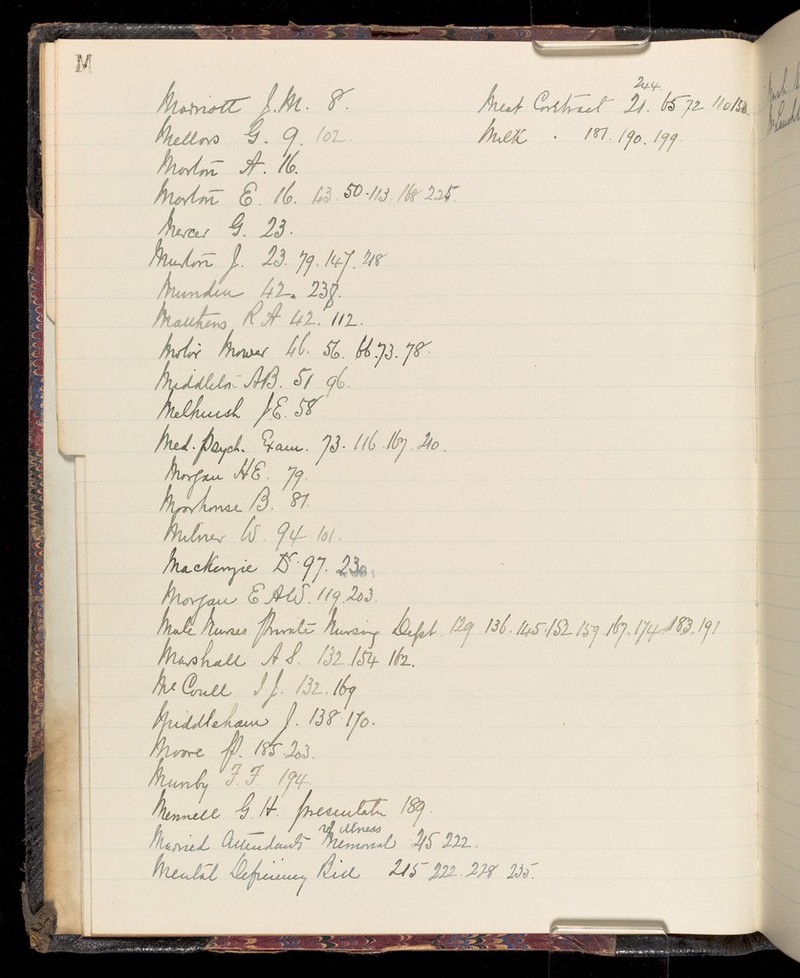 M
Marriott J.M. 8.
Mellors G. 9. 102.
Morton A. 16.
Morton E. 16. 43. 50-113. 168 225.
Mercer G. 23.
J. 23. 79. 147. 218
Munden 42. 238.
Matthews R A 42. 112.
Motor Mower 46. 56. 66. 73. 78.
Middleton AB. 51 96.
Melhuish J E. 58
Med. Psych. Exam. 73. 116. 167. 210.
Morgan H E. 79.
Moorhouse B. 81.
Milner W. 94. 101.
Mackenzie Dr. 97. 230.
Morgan E A W. 119. 203.
Male Nurses Private Nursing Dept. 129 136. 145. 152 159. 167. 174. 183. 191
Marshall A S. 132. 154 162.
McConll I J. 132. 169
Middleham J. 138. 170.
Moore P. 185. 203.
Munby F. F. 194.
Mennell G. H. presentatn 189.
ref illness
Married Attendants Memorial 215 222.
Mental Deficiency Bill 215 222. 228 235.
244.
Meat Contract 21. 65 72 110 153.
Milk . 181. 190. 199.